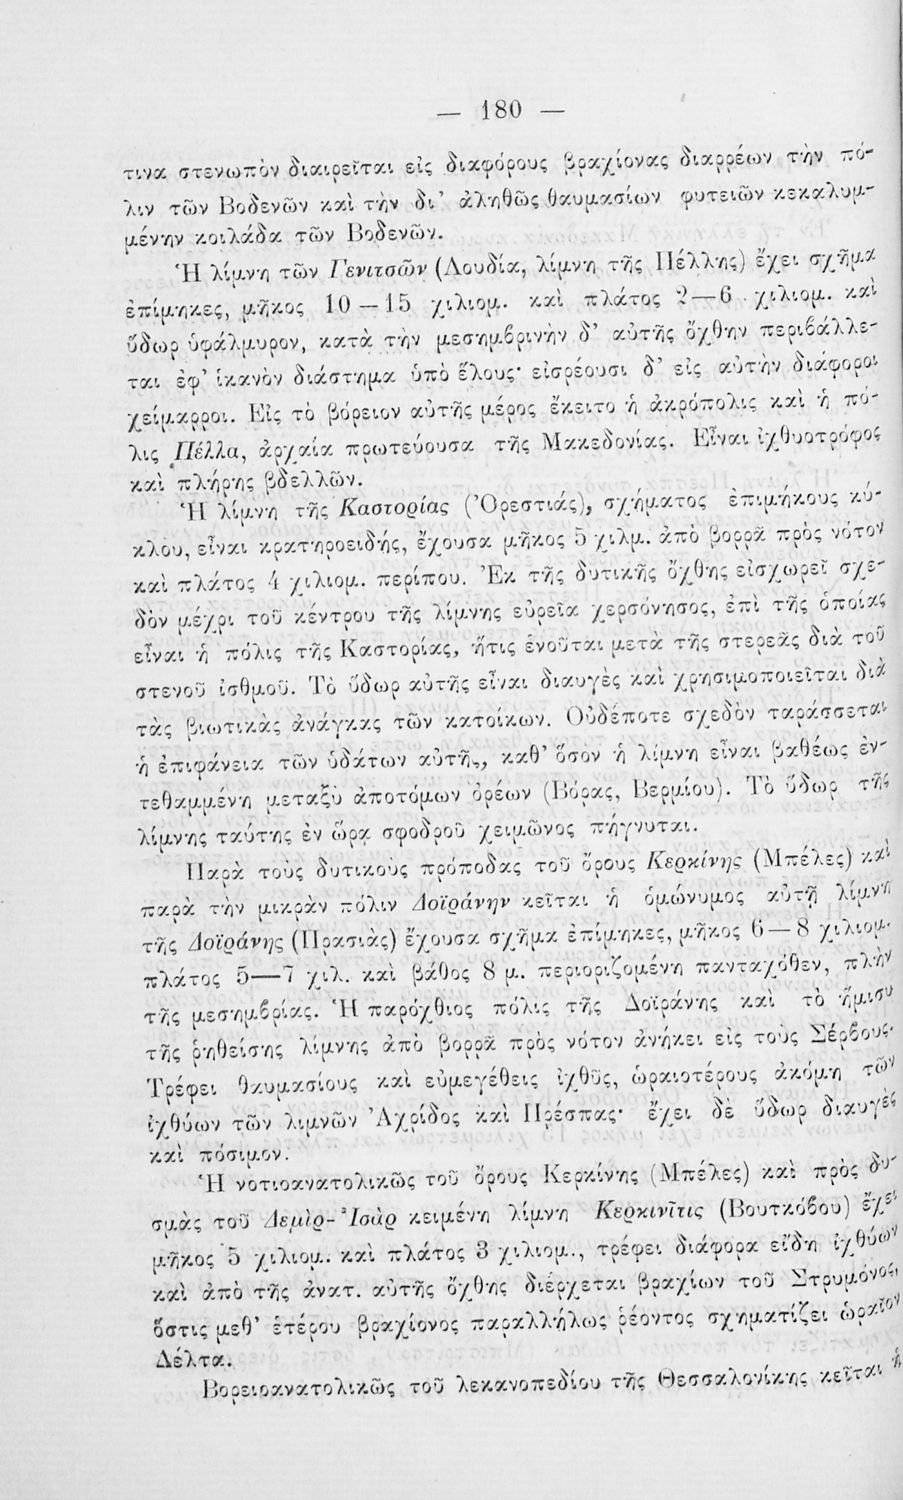 — 180 —
τινα στενωπὸν διαιρεῖται εἰς διαφόρους βραχίονας διαρρέων τὴν πό-
λιν τῶν Βοδενῶν καὶ τὴν δι’ ἀληθῶς θαυμασίων φυτειῶν κεκαλυμ-
μένην κοιλάδα τῶν Βοδενῶν.
Ἡ λίμνη τῶν Γενιτσῶν (Λουδία, λίμνη τῆς Πέλλης) ἔχει σχῆμα
ἐπίμηκες, μῆκος 10 — 15 χιλιομ. καὶ πλάτος 2 — 6 χιλιομ. καὶ
ὕδωρ ὑφάλμυρον, κατὰ τὴν μεσημβρινὴν δ’ αὐτῆς ὄχθην περιβάλλε-
ται ἐφ’ ἱκανὸν διάστημα ὑπὸ ἕλους· εἰσρέουσι δ’ εἰς αὐτὴν διάφοροι
χείμαρροι. Εἰς τὸ βόρειον αὐτῆς μέρος ἔκειτο ἡ ἀκρόπολις καὶ ἡ πό-
λις Πέλλα, ἀρχαία πρωτεύουσα τῆς Μακεδονίας. Εἶναι ἰχθυοτρόφος
καὶ πλήρης βδελλῶν.
Ἡ λίμνη τῆς Καστορίας (Ὀρεστιάς), σχήματος ἐπιμήκους κύ-
κλου, εἶναι κρατηροειδής, ἔχουσα μῆκος 5 χιλμ. ἀπὸ βορρᾶ πρὸς νότον
καὶ πλάτος 4 χιλιομ. περίπου. Ἐκ τῆς δυτικῆς ὄχθης εἰσχωρεῖ σχε-
δὸν μέχρι τοῦ κέντρου τῆς λίμνης εὐρεῖα χερσόνησος, ἐπὶ τῆς ὁποίας
εἶναι ἡ πόλις τῆς Καστορίας, ἥτις ἑνοῦται μετὰ τῆς στερεᾶς διὰ τοῦ
στενοῦ ἰσθμοῦ. Τὸ ὕδωρ αὐτῆς εἶναι διαυγὲς καὶ χρησιμοποιεῖται διὰ
τὰς βιωτικὰς ἀνάγκας τῶν κατοίκων. Οὐδέποτε σχεδὸν ταράσσεται
ἡ ἐπιφάνεια τῶν ὑδάτων αὐτῆς, καθ’ ὅσον ἡ λίμνη εἶναι βαθέως ἐν-
τεθαμμένη μεταξὺ ἀποτόμων ὀρέων (Βόρας, Βερμίου). Τὸ ὕδωρ τῆς
λίμνης ταύτης ἐν ὥρᾳ σφοδροῦ χειμῶνος πήγνυται.
Παρὰ τοὺς δυτικοὺς πρόποδας τοῦ ὄρους Κερκίνης (Μπέλες) καὶ
παρὰ τὴν μικρὰν πόλιν Δοϊράνην κεῖται ἡ ὁμώνυμος αὐτῇ λίμνη
τῆς Δοϊράνης (Πρασιὰς) ἔχουσα σχῆμα ἐπίμηκες, μῆκος 6 — 8 χιλιομ.
πλάτος 5 — 7 χιλ. καὶ βάθος 8 μ. περιοριζομένη πανταχόθεν, πλὴν
τῆς μεσημβρίας. Ἡ παρόχθιος πόλις τῆς Δοϊράνης καὶ τὸ ἥμισυ
τῆς ῥηθείσης λίμνης ἀπὸ βορρᾶ πρὸς νότον ἀνήκει εἰς τοὺς Σέρβους·
Τρέφει θαυμασίους καὶ εὐμεγέθεις ἰχθῦς, ὡραιοτέρους ἀκόμη τῶν
ἰχθύων τῶν λιμνῶν Ἀχρίδος καὶ Πρέσπας· ἔχει δὲ ὕδωρ διαυγὲς
καὶ πόσιμον.
Ἡ νοτιοανατολικῶς τοῦ ὄρους Κερκίνης (Μπέλες) καὶ πρὸς δυ-
σμὰς τοῦ Δεμὶρ-Ἰσὰρ κειμένη λίμνη Κερκινῖτις (Βουτκόβου) ἔχει
μῆκος 5 χιλιομ. καὶ πλάτος 3 χιλιομ., τρέφει διάφορα εἴδη ἰχθύων
καὶ ἀπὸ τῆς ἀνατ. αὐτῆς ὄχθης διέρχεται βραχίων τοῦ Στρυμόνος,
ὅστις μεθ’ ἑτέρου βραχίονος παραλλήλως ῥέοντος σχηματίζει ὡραῖον
Δέλτα.
Βορειοανατολικῶς τοῦ λεκανοπεδίου τῆς Θεσσαλονίκης κεῖται ἡ